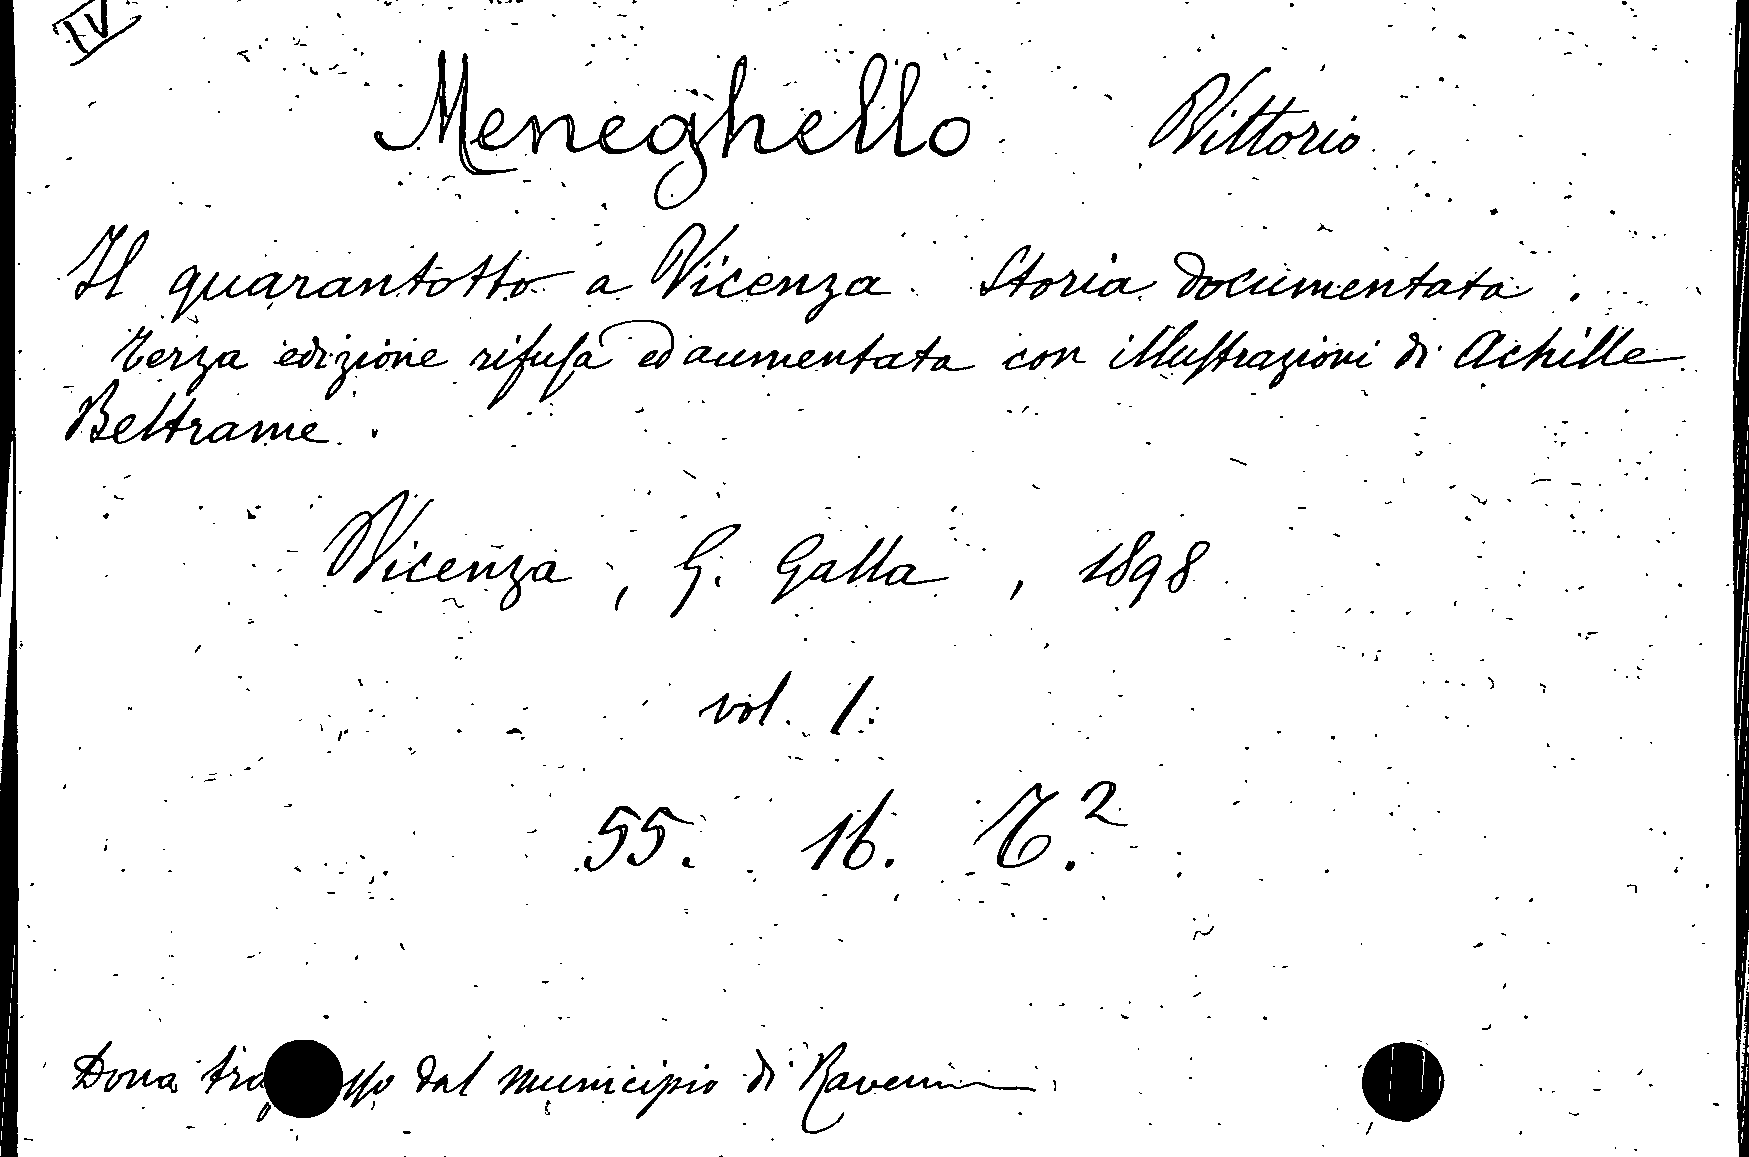 IV
Meneghello Vittorio
Il quarantotto a Vicenza. Storia documentata.
Terza edizione rifusa ed aumentata con illustrazioni di Achille
Beltrame.
Vicenza, G. Galla, 1898
vol. 1.
55. 16. T.²
dal Municipio di Ravenna